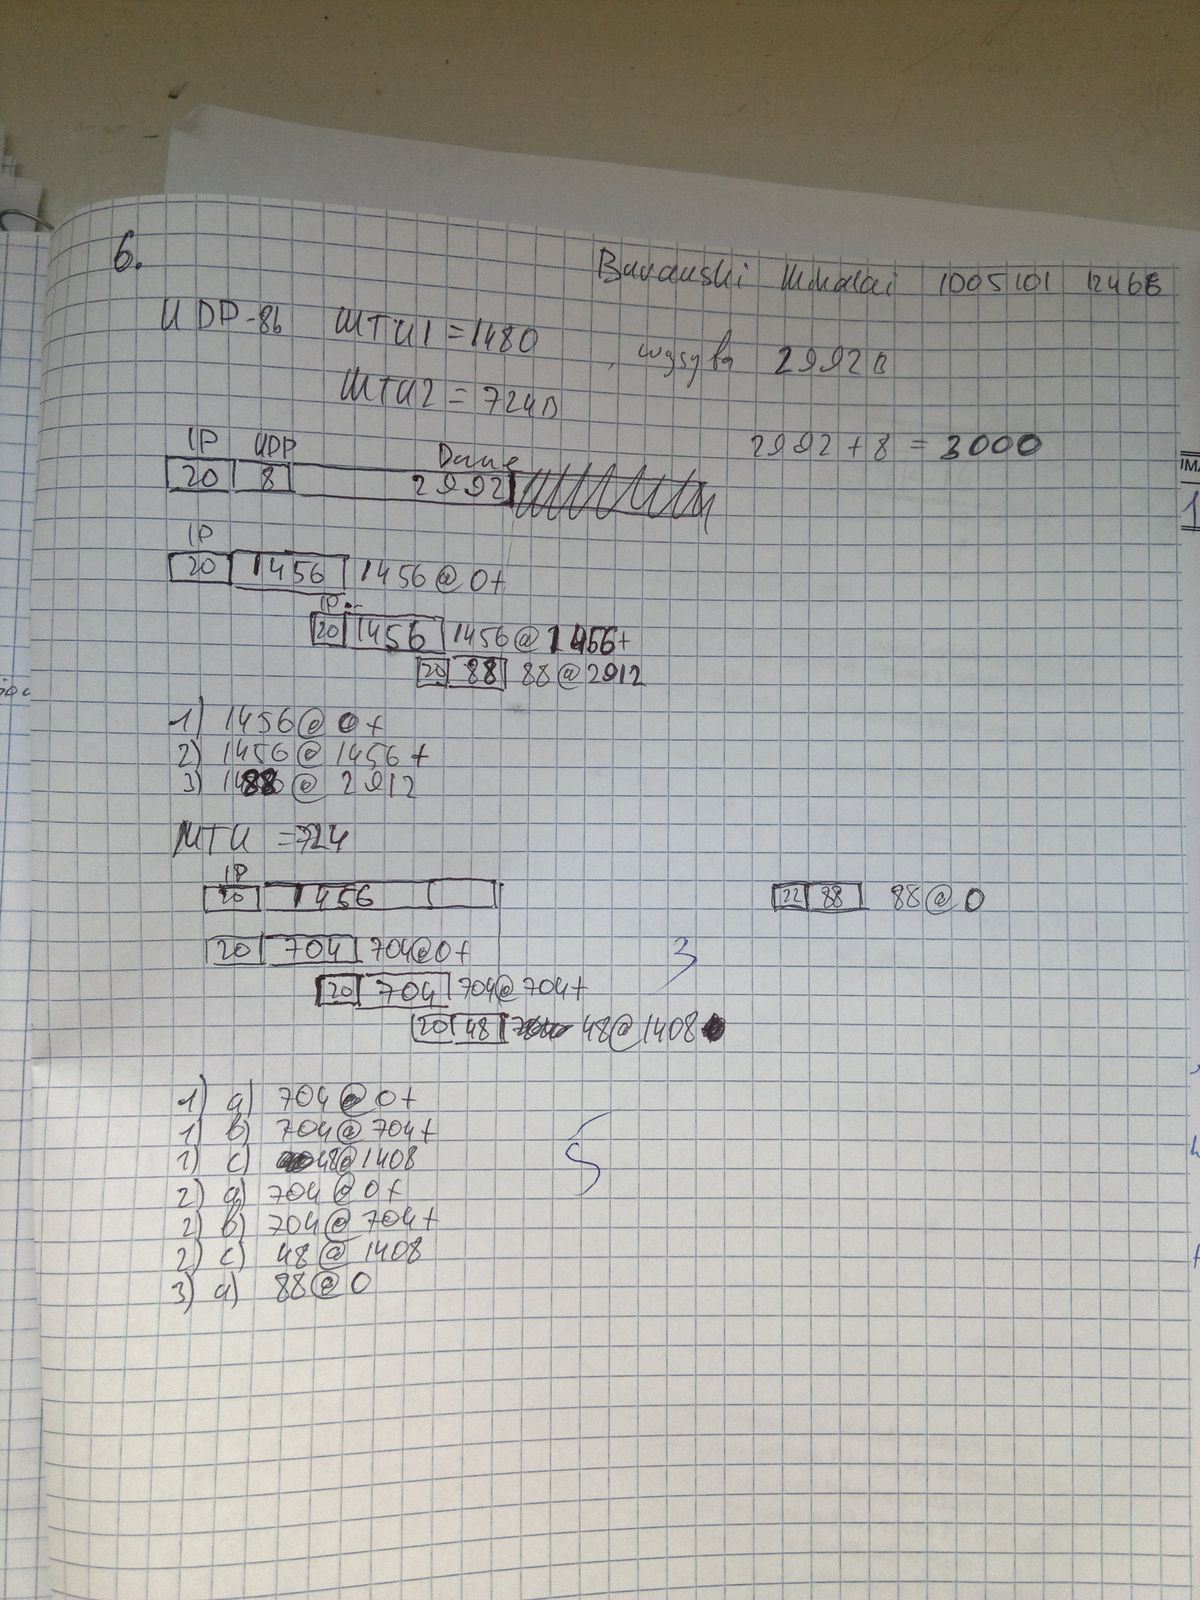 6.
1005101
UDP-8b MTU1 = 1480 , wysyła 2992B
MTU2 = 724B
2992 + 8 = 3000
IP UDP Dane
20 8 2992
IP
20 1456 1456@0+
IP
20 1456 1456@1456+
20 88 88@2912
1) 1456@0+
2) 1456@1456+
3) 88@2912
MTU = 724
IP
20 1456
22 88 88@0
20 704 704@0+
3
20 704 704@704+
20 48 48@1408
1) a) 704@0+
1) b) 704@704+
1) c) 48@1408
5
2) a) 704@0+
2) b) 704@704+
2) c) 48@1408
3) a) 88@0